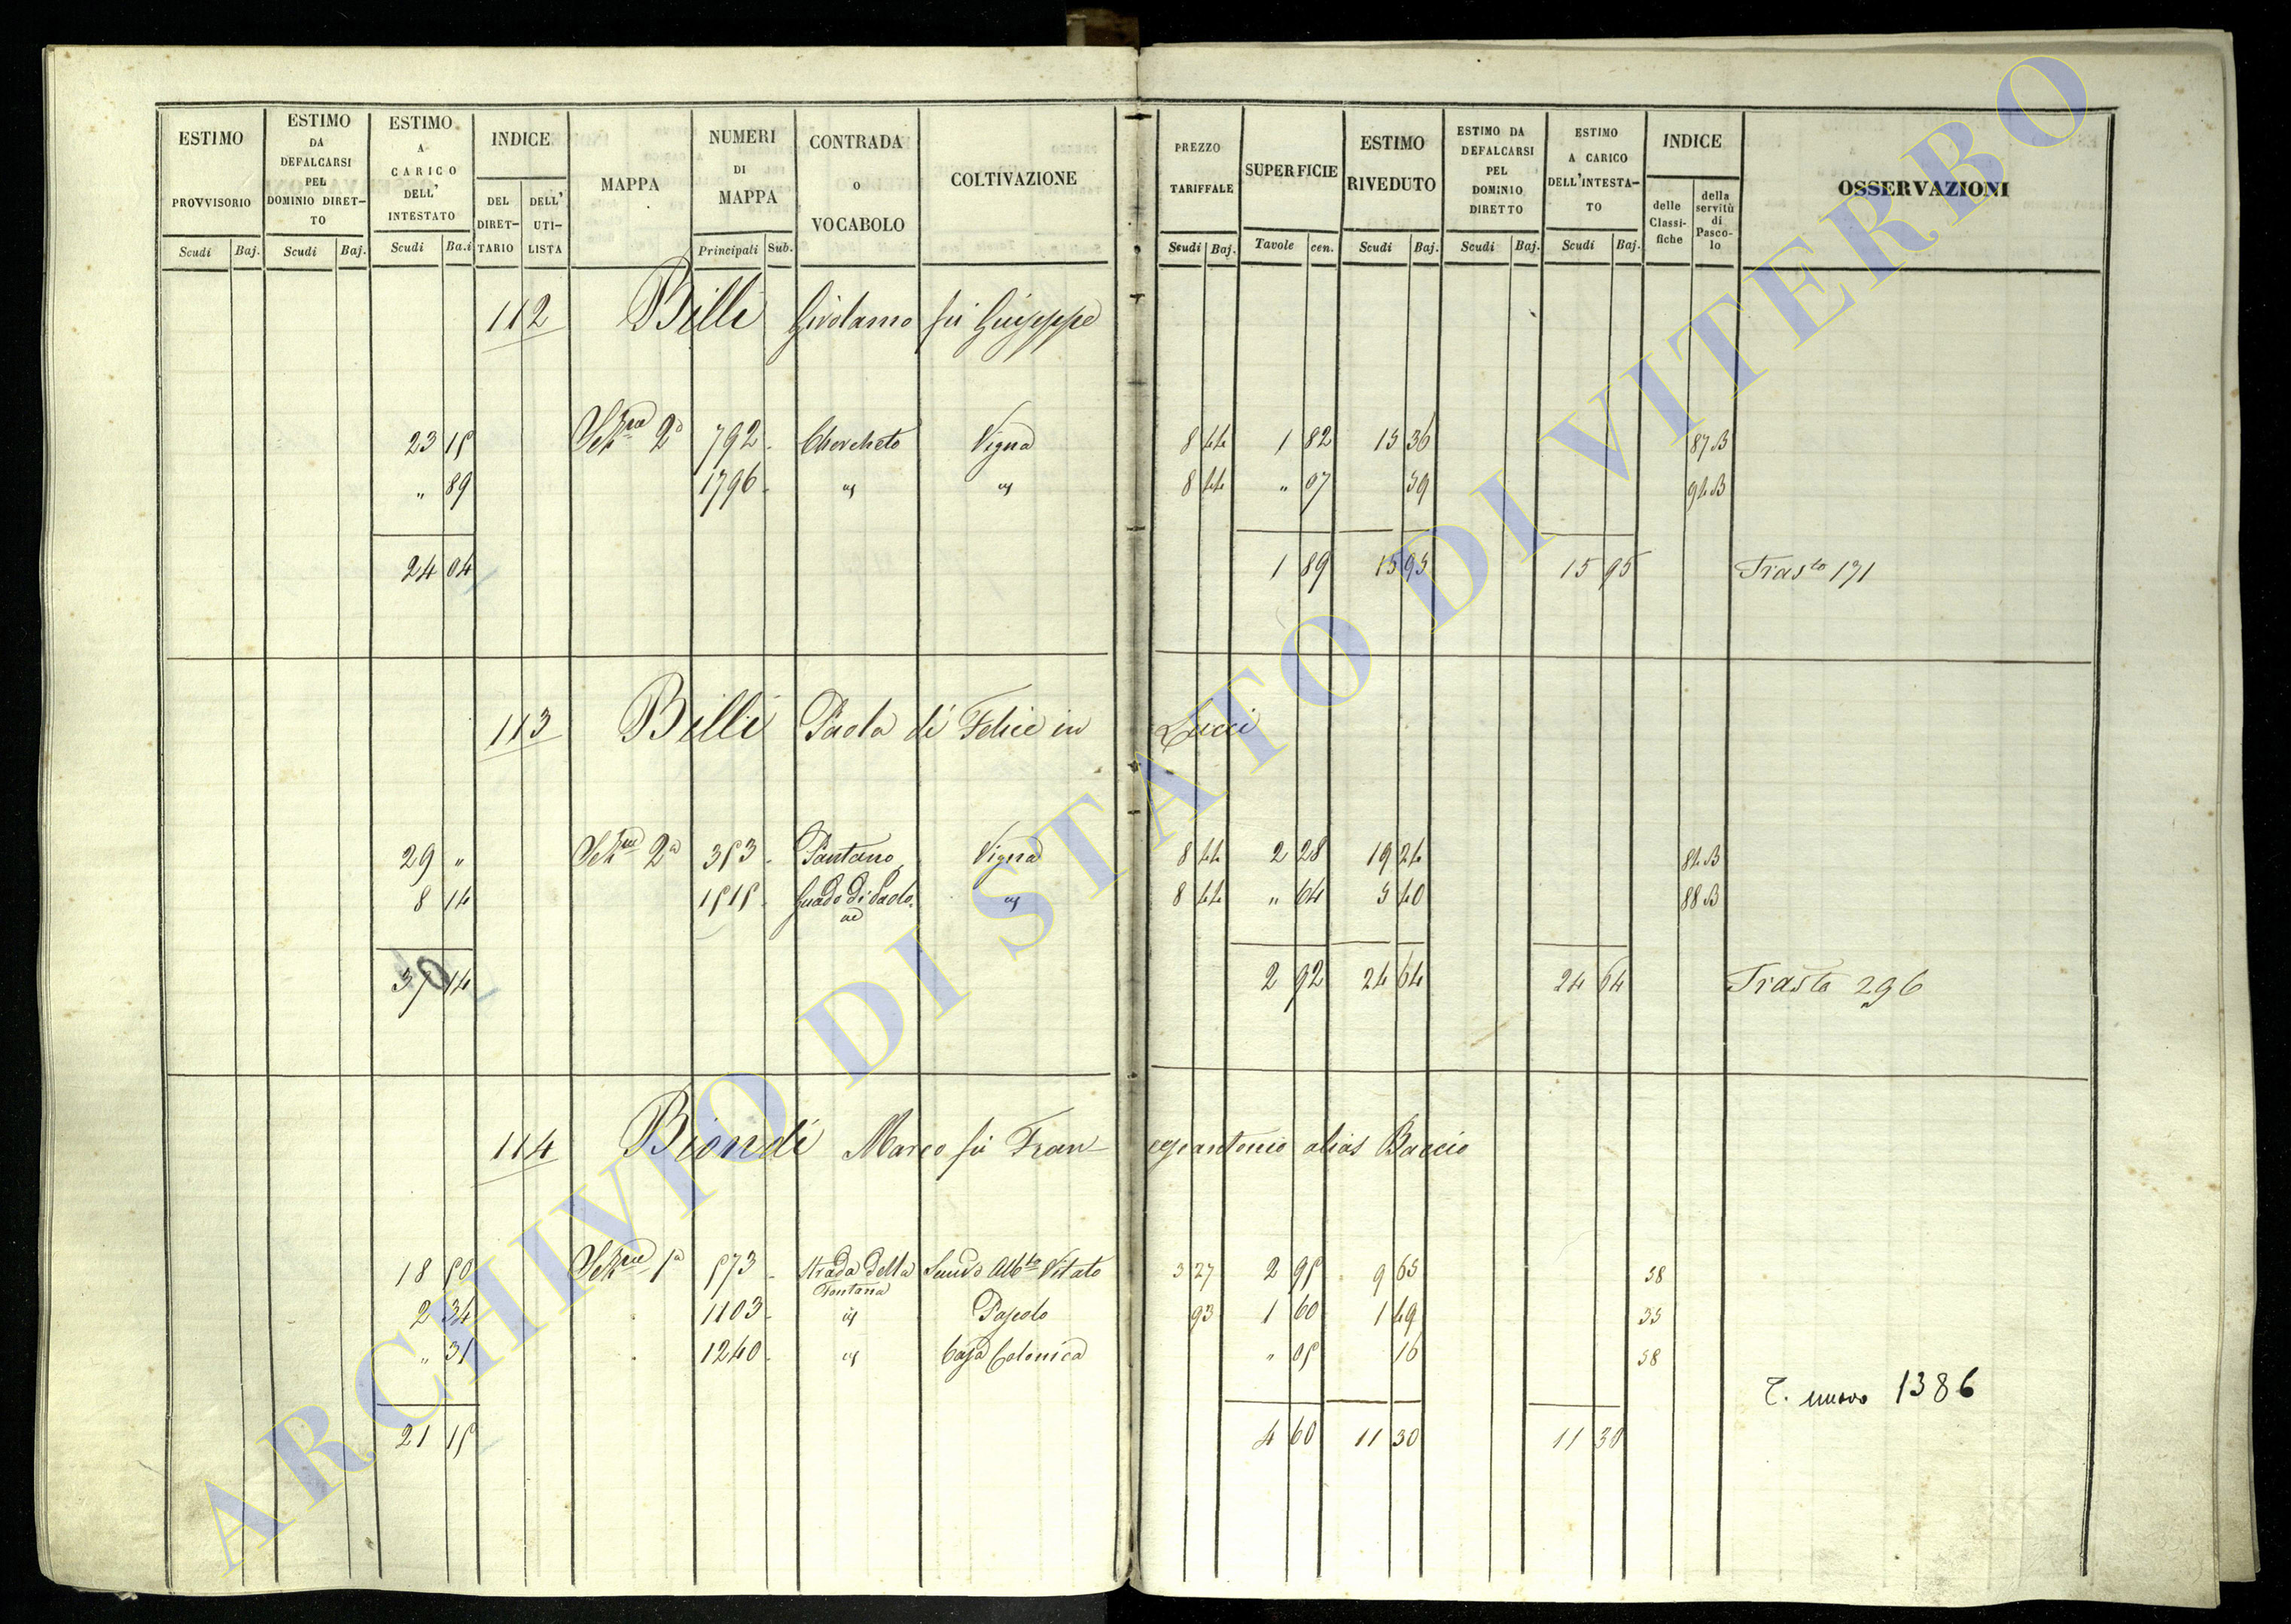 ESTIMO PROVVISORIO Scudi Baj. ESTIMO DA DEFALCARSI PEL DOMINIO DIRET-TO Scudi Baj. ESTIMO A CARICO DELL' INTESTATO Scudi Ba.i INDICE DEL DIRET-TARIO DELL' UTI-LISTA MAPPA NUMERI DI MAPPA Principali Sub. CONTRADA o VOCABOLO COLTIVAZIONE PREZZO TARIFFALE Scudi Baj. SUPERFICIE Tavole cen. ESTIMO RIVEDUTO Scudi Baj. ESTIMO DA DEFALCARSI PEL DOMINIO DIRETTO Scudi Baj. ESTIMO A CARICO DELL'INTESTA-TO Scudi Baj. INDICE delle Classi-fiche della servitù di Pasco-lo OSSERVAZIONI
112 Billi Girolamo fù Giuseppe
23 15 Sezne 2a 792 Chercheto Vigna 8 44 1 82 15 36 87 B
" 89 1796 " " 8 44 " 07 59 94 B
24 04 1 89 15 95 15 95 Trasto 171
113 Billi Paola di Felice in Lucci
29 " Sezne 2a 353 Pantano Vigna 8 44 2 28 19 24 84 B
8 14 1515 Guado di Paolo " 8 44 " 64 5 40 88 B
37 14 2 92 24 64 24 64 Trasto 296
114 Biondi Marco fù Fran- cescantonio alias Baccio
18 50 Sezne 1a 573 Strada della Fontana Semvo Albto Vitato 3 27 2 95 9 65 58
2 34 1103 " Pascolo 93 1 60 1 49 55
" 31 1240 " Casa Colonica " 05 16 58
T. nuovo 1386
21 15 4 60 11 30 11 30
ARCHIVIO DI STATO DI VITERBO